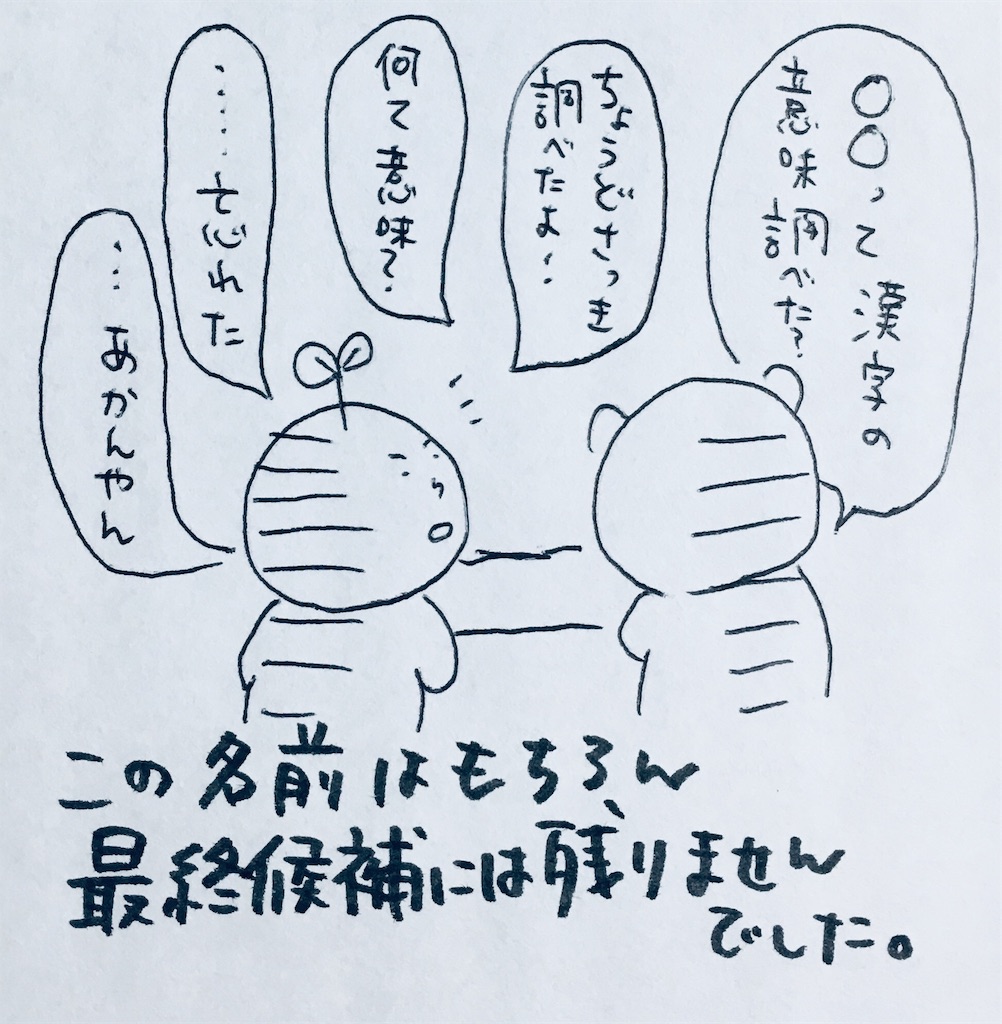 ○○って漢字の
意味調べた?
ちょうどさっき
調べたよ!
何て意味?
……忘れた
…あかんやん
この名前はもちろん、
最終候補には残りません
でした。